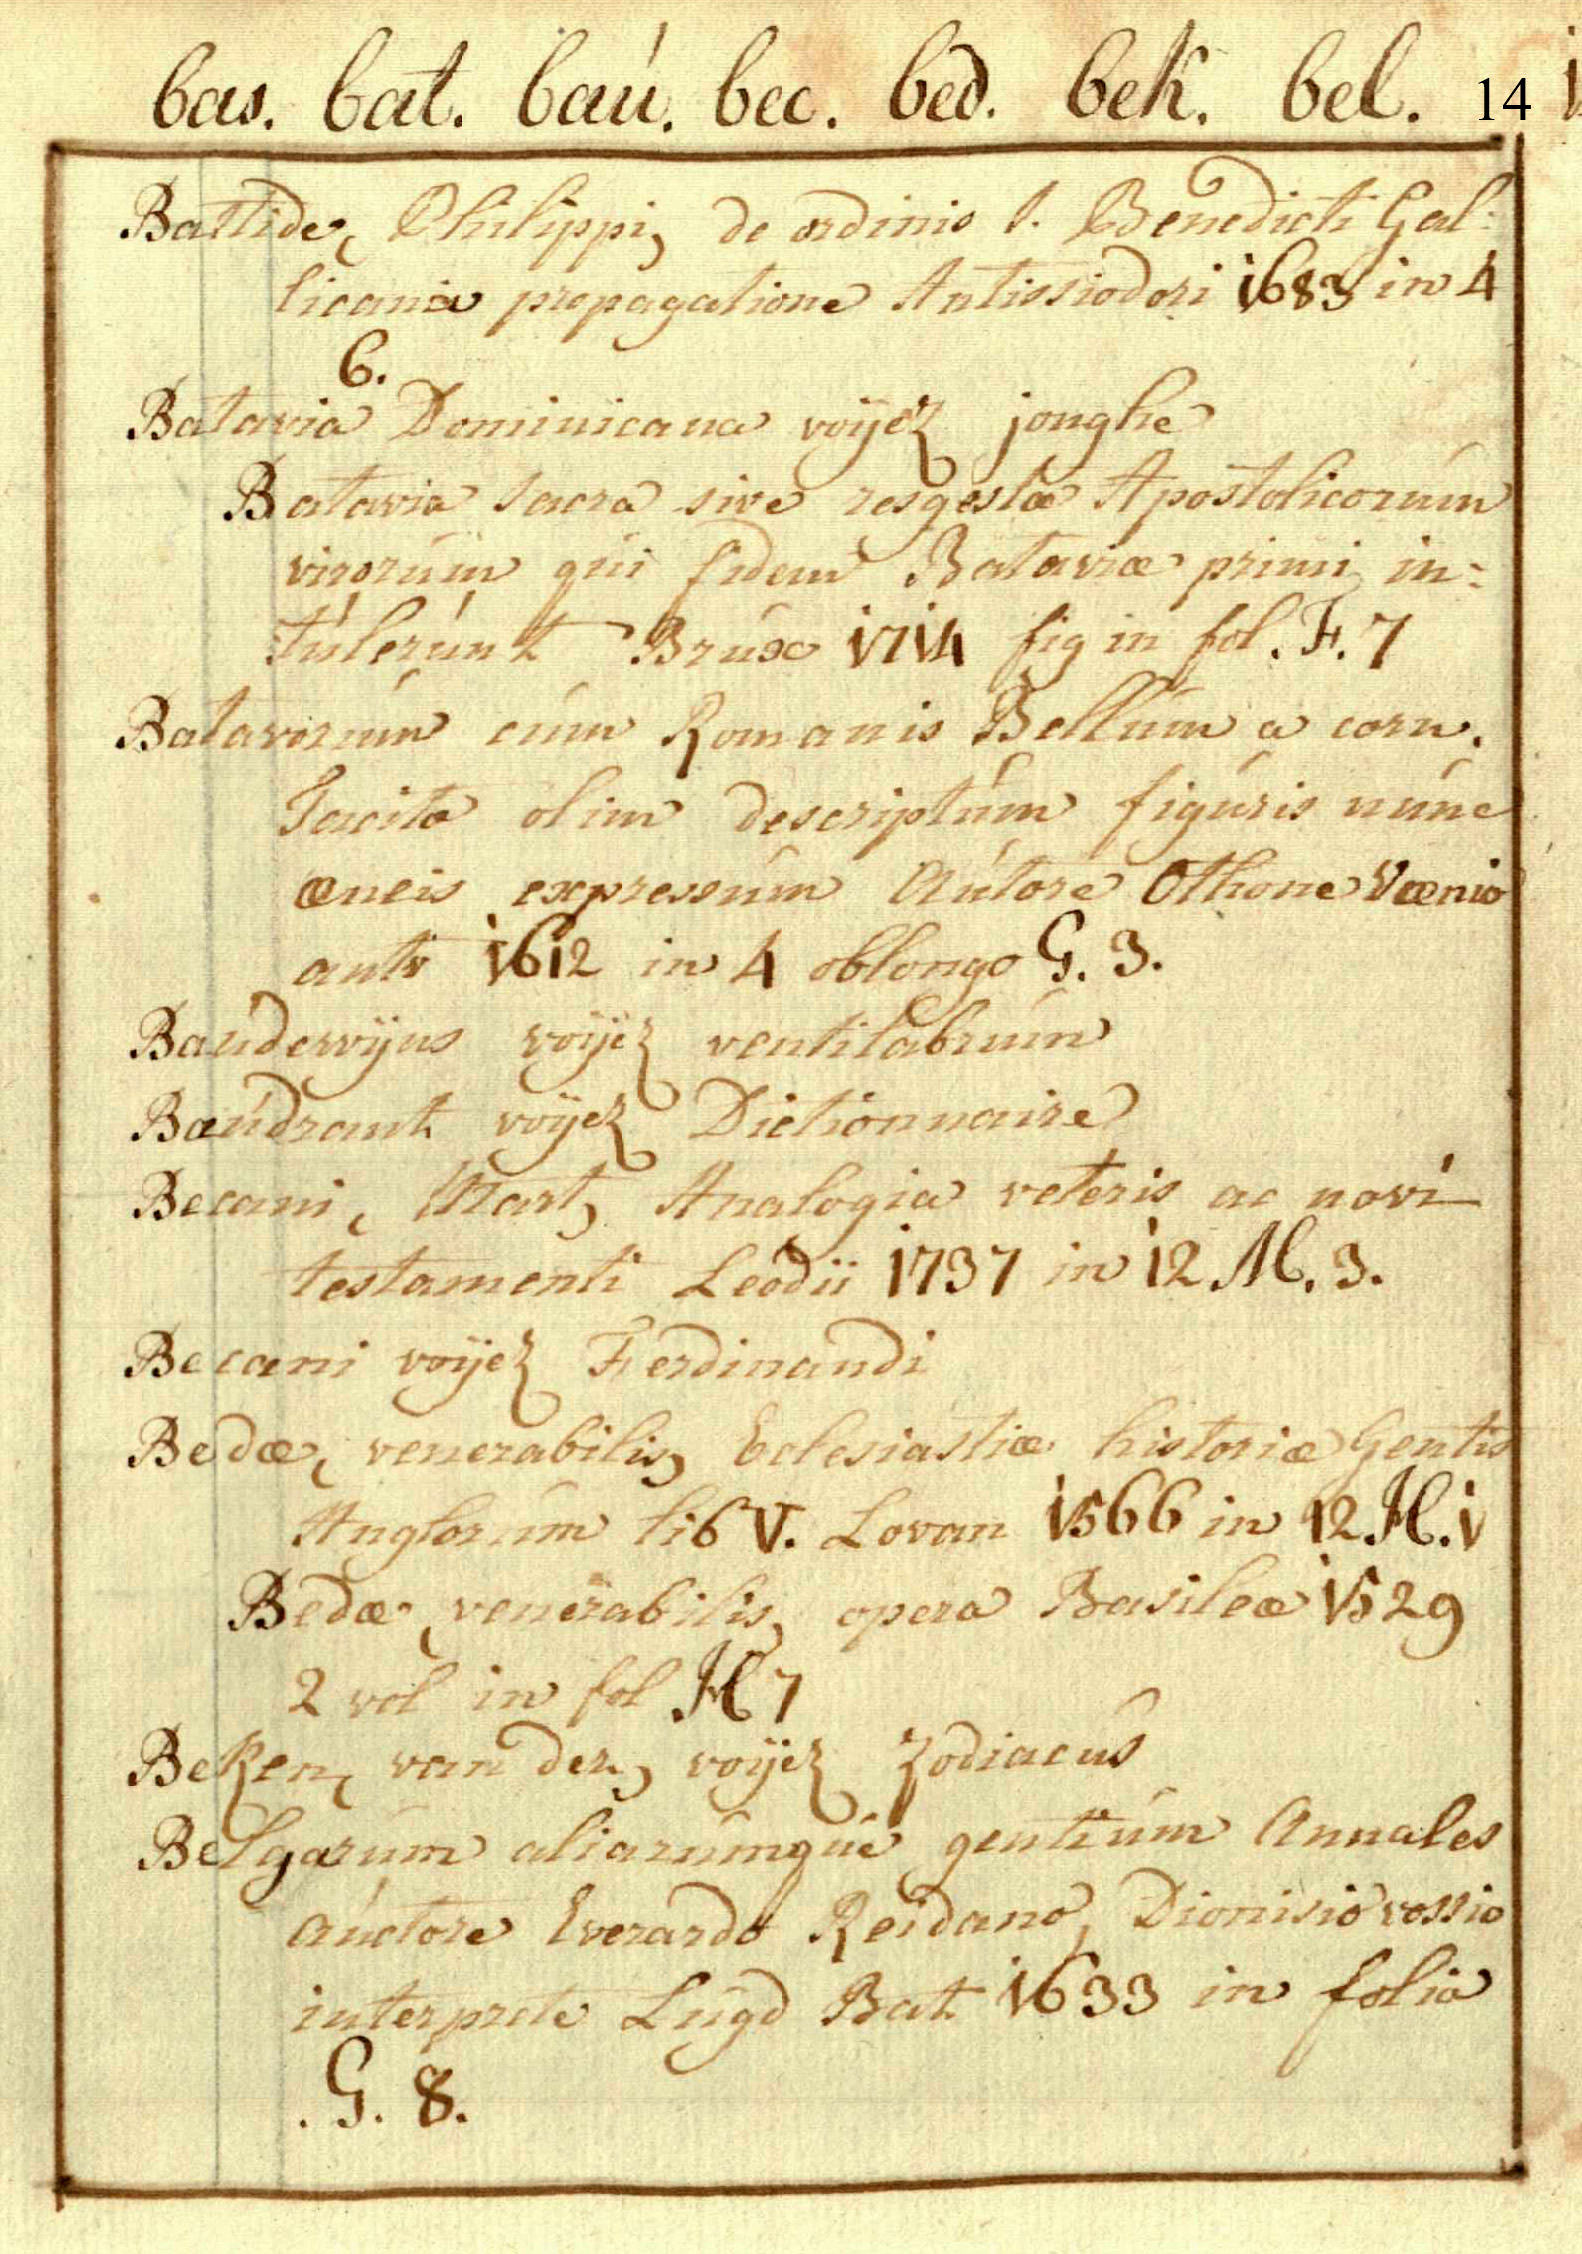 bas. bat. baú. bec. bed. bek. bel. 14
Bastide, (Philippi) de ordinis S. Benedicti Gal:
licania propagatione Antissiodori 1683 in 4
6.
Batavia Dominicana voÿez jonghe
Batavia sacra sive resgestæ Apostolicorúm
virorúm qúi fidem Bataviæ primi in:
túlerúnt Brúx 1714 fig in fol. F. 7
Batavorúm cúm Romanis Bellúm a corn.
Tacito olim descriptúm figúris núnc
æneis expressúm Aútore Othone Vænio
antv 1612 in 4 oblongo G. 3.
Baúdewÿns voÿez ventilabrúm
Baúdrant voÿez Dictionnaire
Becani, (Mart) Analogia veteris ac novi
testamenti Leodii 1737 in 12 M. 3.
Becani voÿez Ferdinandi
Bedæ, (venerabilis) Eclesiastiæ historiæ Gentis
Anglorúm lib V. Lovan 1566 in 12. H. 1
Bedæ (venerabilis) opera Basileæ 1529
2 vol in fol H 7
Beken (van der) voÿez Zodiacús
Belgarúm aliarúmqúe gentiúm Annales
Aúctore Everardo Reidano, Dionisio vossio
interprete Lúgd Bat 1633 in folio
. G. 8.